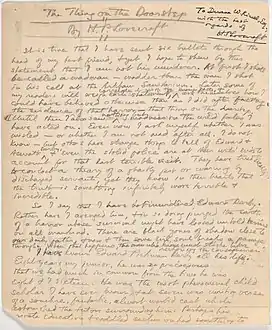 The Thing on the Doorstep
By H. P. Lovecraft
To Duane W. Rimel, Esq.,
with the best
regards of
H. P. Lovecraft
It is true that I have sent six bullets through the
head of my best friend, and yet I hope to shew by this
statement that I am not his murderer. At first I shall
be called a madman—madder than the man I shot
in his cell at the Arkham Sanitarium. Later some of
my readers will
could have believed otherwise than as I did after facing
the evidence of that horror—that thing on the doorstep.
Until then I also saw
have acted on. Even now I ask myself whether I was
misled—or whether I am not mad after all. I do not
know—but others have strange things to tell of Edward &
Asenath Derby, & even the stolid police are at their wits' ends to
account for that last terrible visit. They have tried
to concoct a theory of a ghastly jest or warning by
discharged servants, yet they know in their hearts that
the truth is something infinitely more terrible &
incredible.
So I say that I have not murdered Edward Derby.
Rather have I avenged him, & in so doing purged the earth
of a horror whose survival might have loosed untold terrors
on all mankind. There are black zones of shadow close to
our daily paths, & now & then some evil soul breaks a passage
through. When that happens, the man who knows must strike before
I have known Edward Pickman Derby all his life.
Eight years my junior, he was so precocious
that we had much in common from the time he was
eight & I sixteen. He was the most phenomenal child
scholar I have ever known, & at seven was writing verse
of a sombre, fantastic, almost morbid cast which
astonished the tutors surrounding him. Perhaps his
private education & coddled seclusion had something to